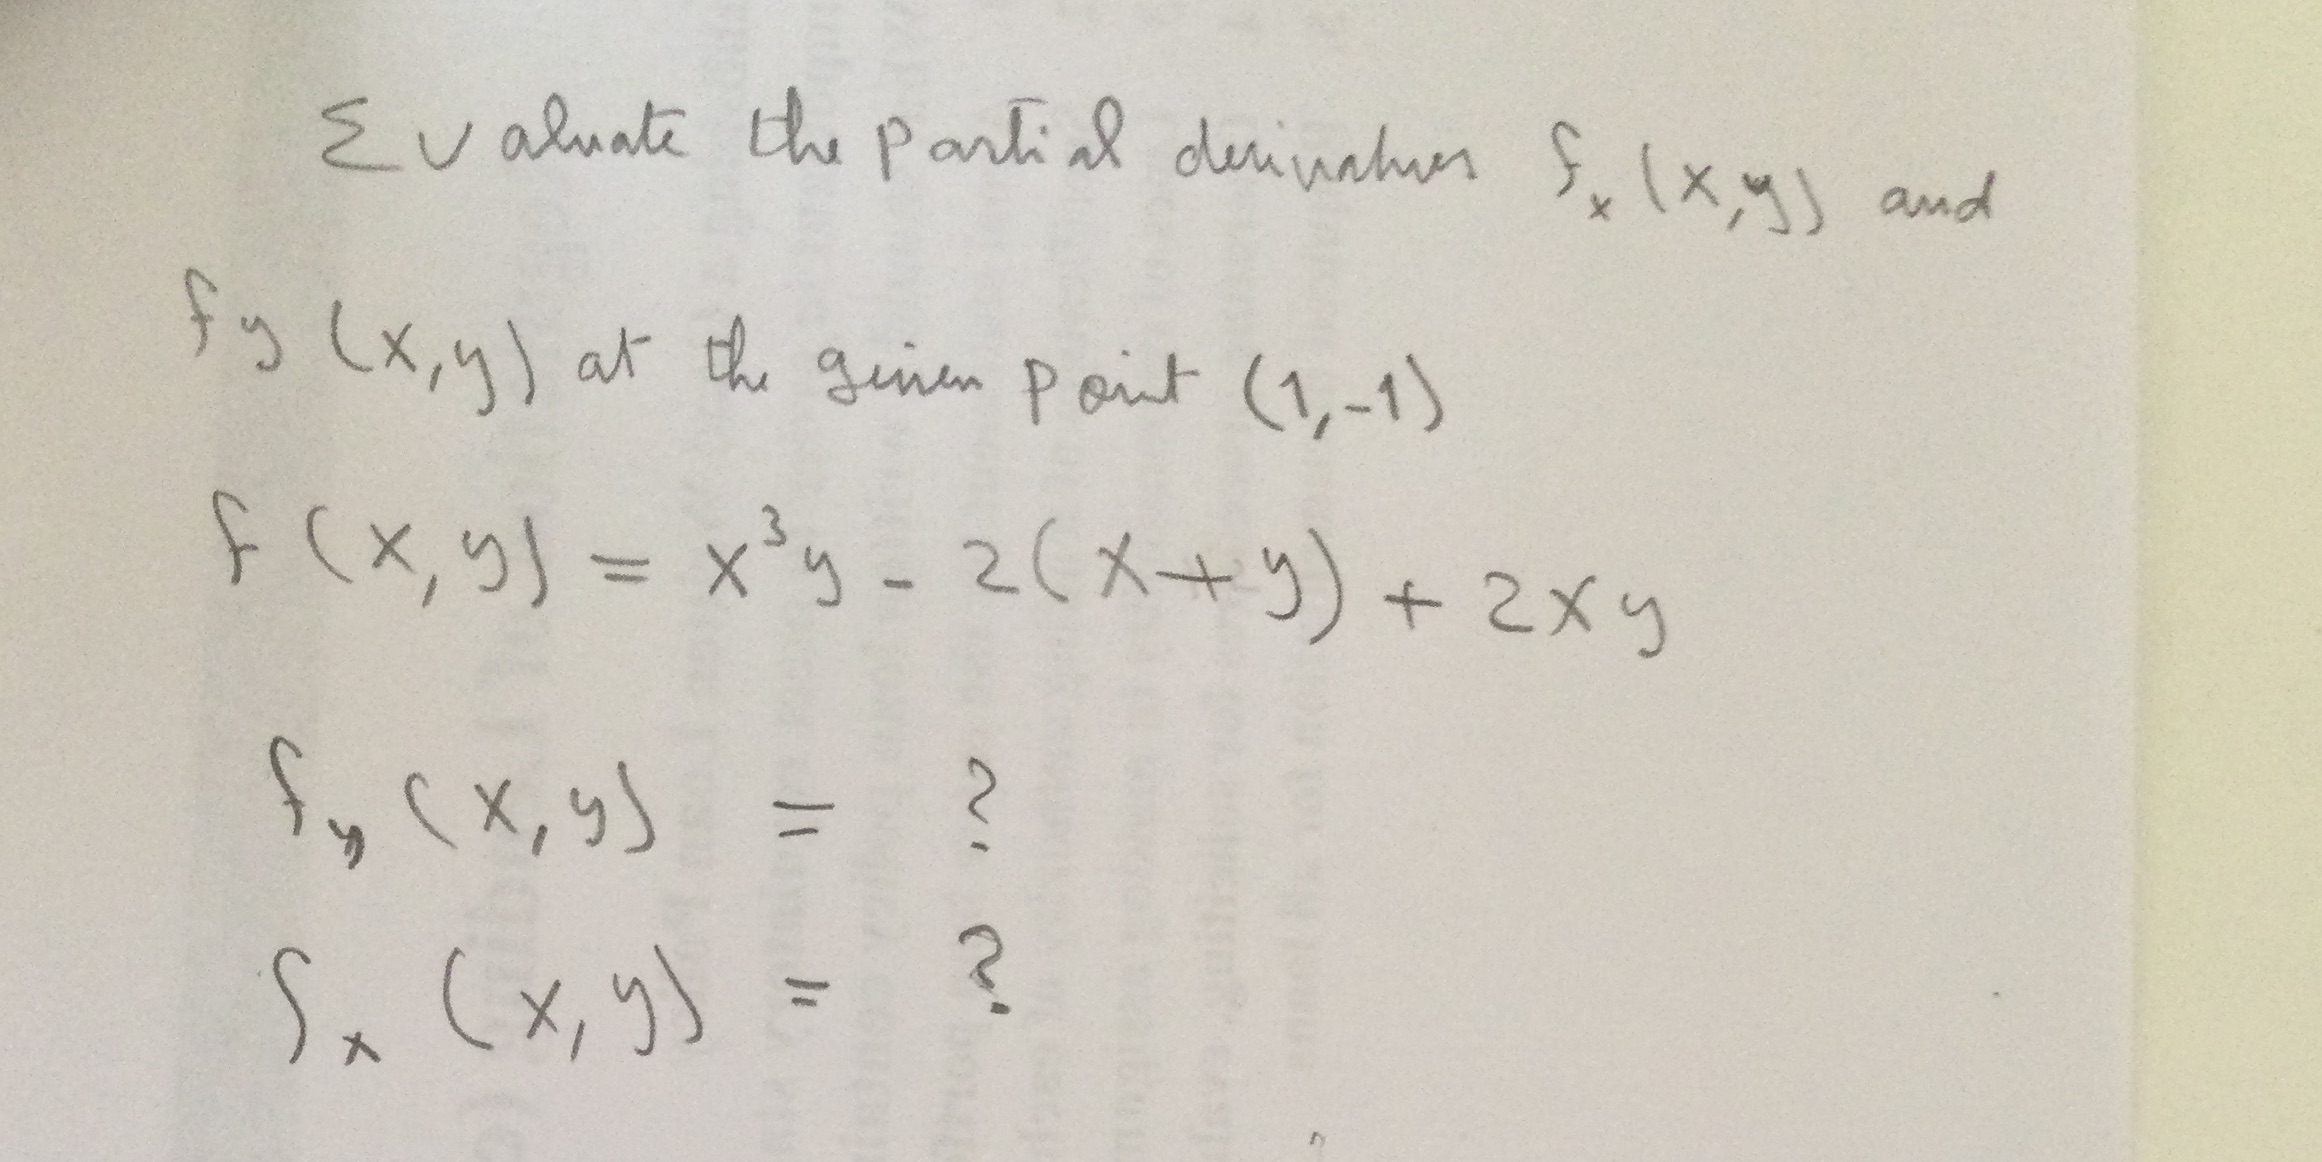 Evaluate the partial derivatives fₓ(x,y) and
fy(x,y) at the given point (1,-1)
f(x,y) = x³y - 2(x+y) + 2xy
fy(x,y) = ?
fₓ(x,y) = ?